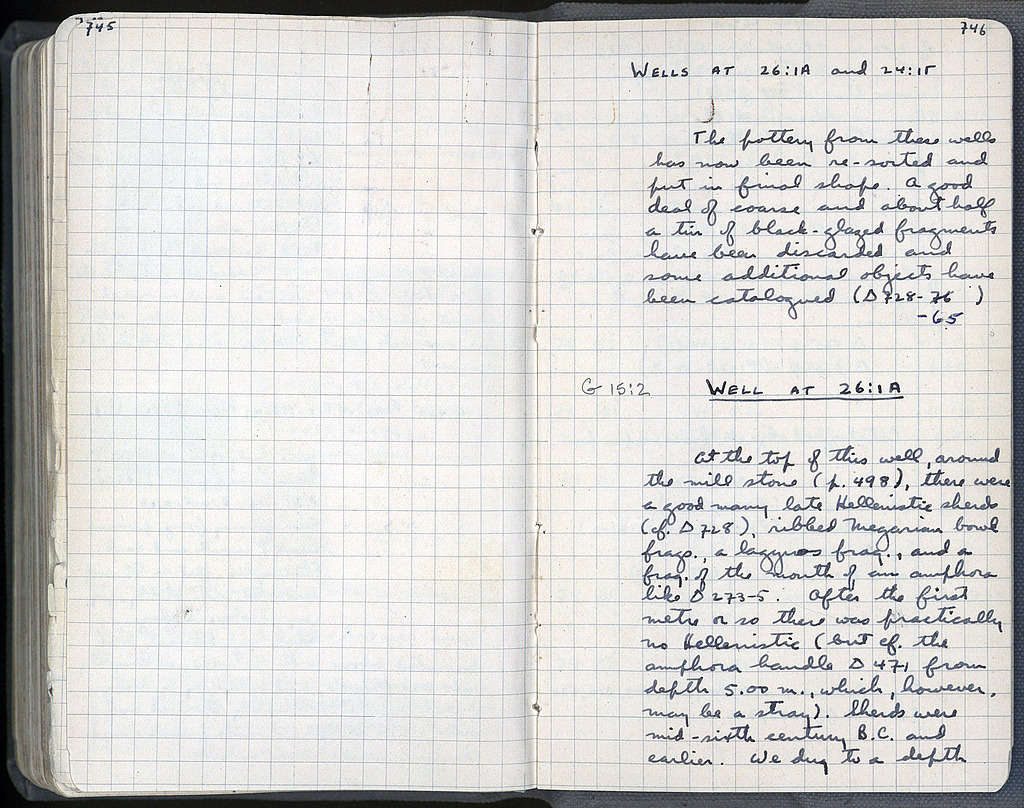 745
746
WELLS AT 26:1A and 24:1Γ
The pottery from these wells
has now been re-sorted and
put in final shape. A good
deal of coarse and about half
a tin of black-glazed fragments
have been discarded and
some additional objects have
been catalogued (Δ 728-76 )
-65
G 15:2
WELL AT 26:1A
At the top of this well, around
the mill stone (p. 498), there were
a good many late Hellenistic sherds
(cf. Δ 728), ribbed Megarian bowl
frags., a lagynos frag., and a
frag. of the mouth of an amphora
like Δ 273-5. After the first
metre or so there was practically
no Hellenistic (but cf. the
amphora handle Δ 471 from
depth 5.00 m., which, however,
may be a stray). Sherds were
mid-sixth century B.C. and
earlier. We dug to a depth